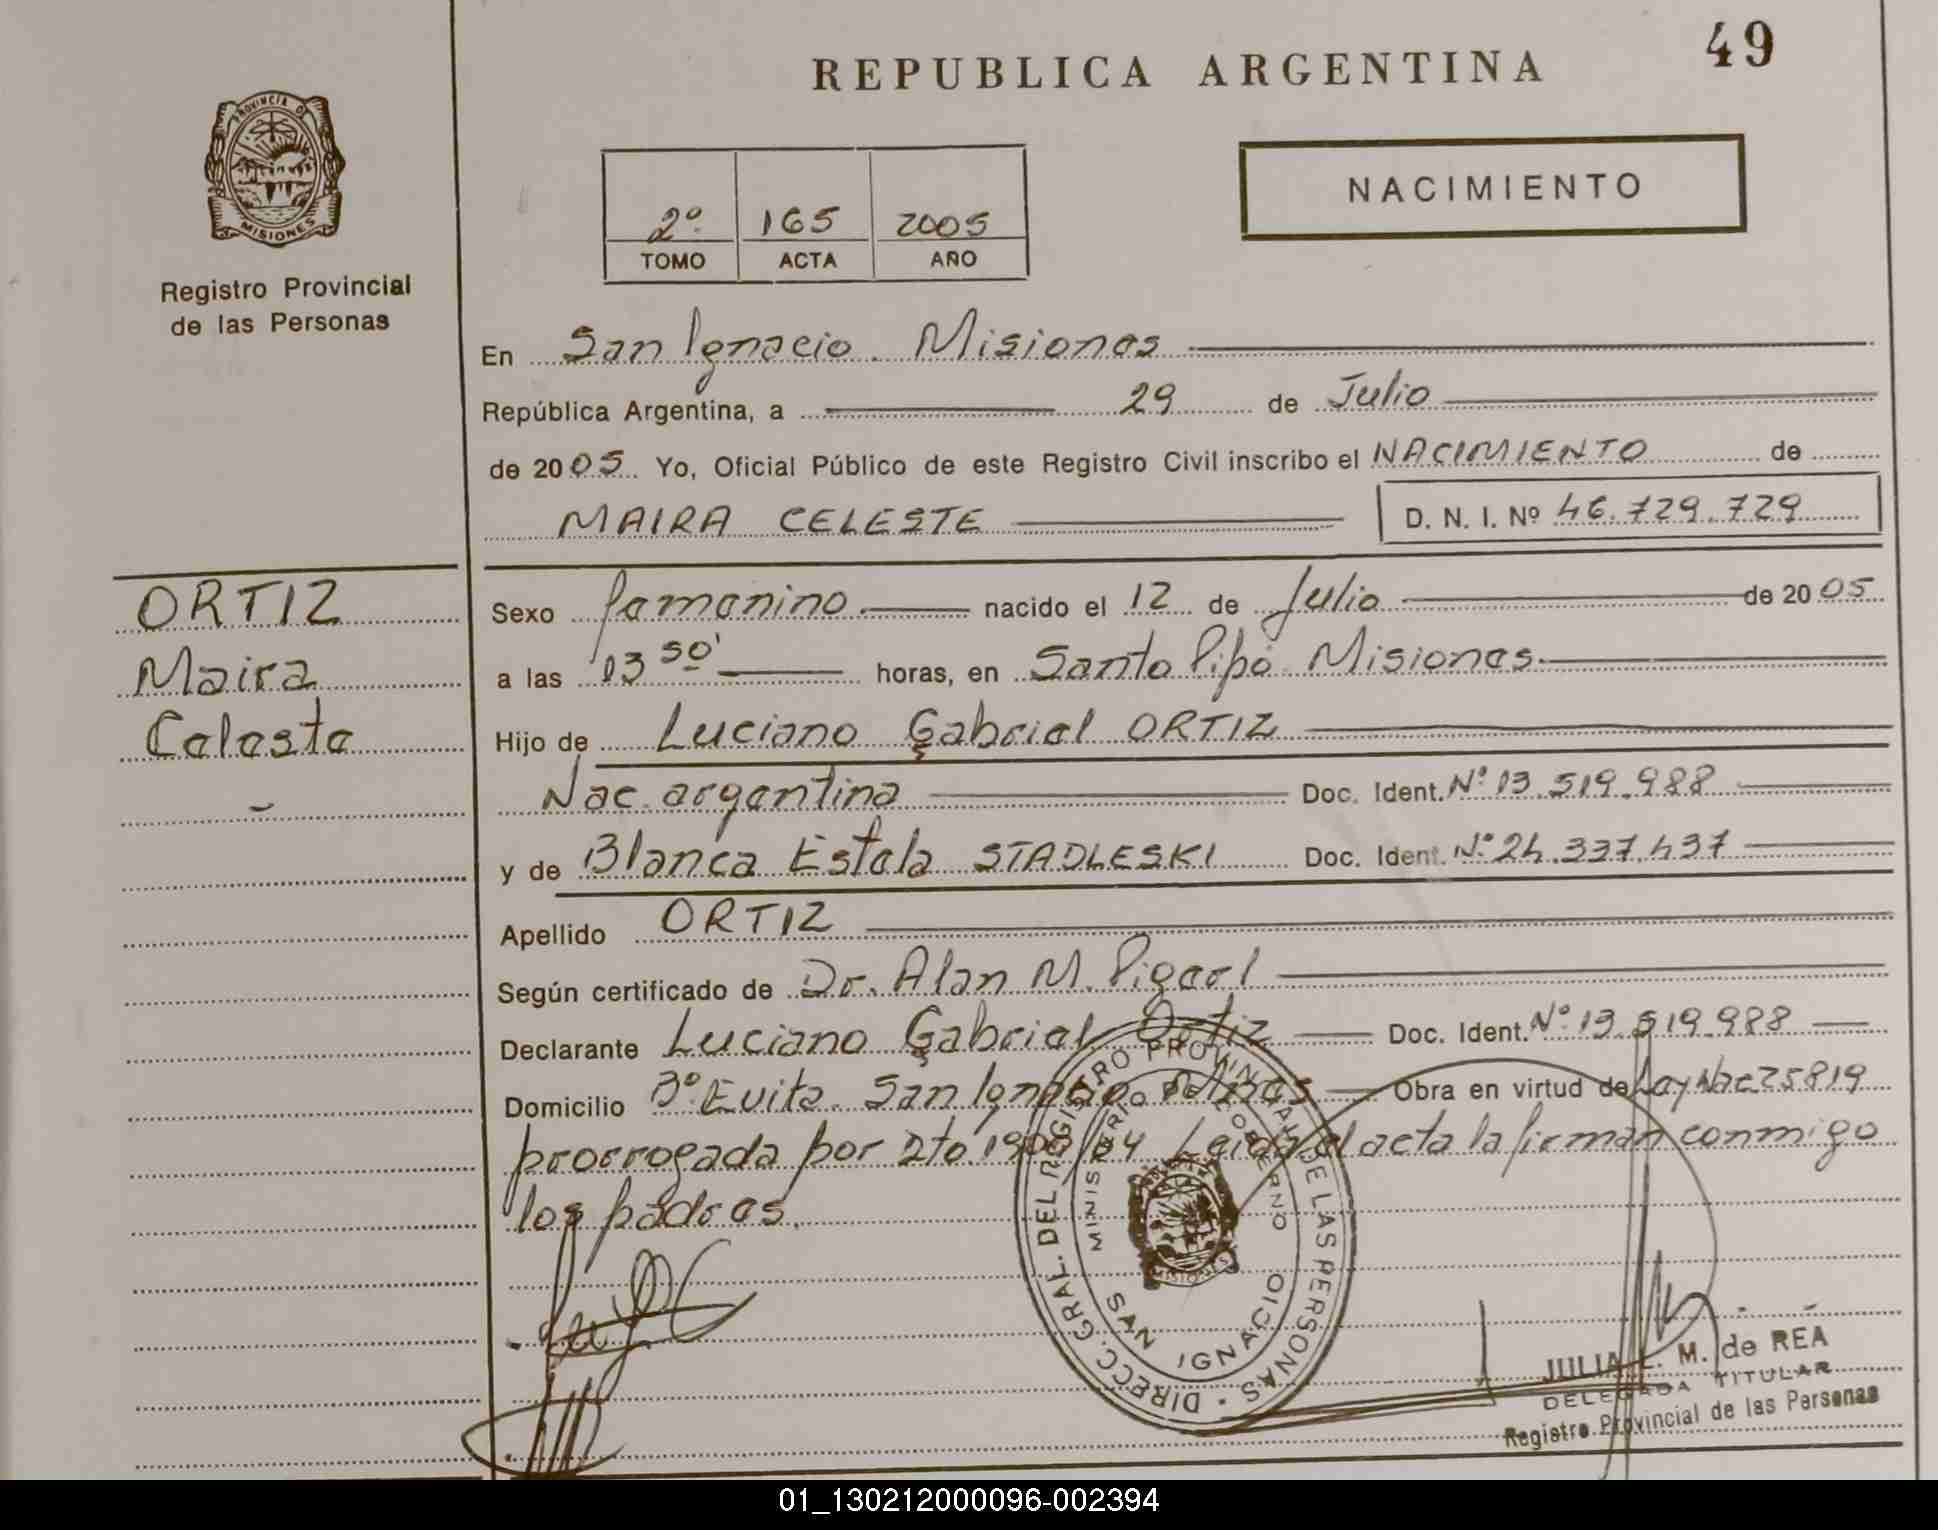 49
REPUBLICA ARGENTINA
NACIMIENTO
PROVINCIA DE
MISIONES
Registro Provincial
de las Personas
2º 165 2005
TOMO ACTA AÑO
En San Ignacio. Misiones
República Argentina, a 29 de Julio
de 2005 Yo, Oficial Público de este Registro Civil inscribo el NACIMIENTO de
MAIRA CELESTE D. N. I. Nº 46.729.729
ORTIZ
Maira
Celeste
Sexo femenino nacido el 12 de Julio de 2005
a las 13 50' horas, en Santo Pipó Misiones
Hijo de Luciano Gabriel ORTIZ
Nac. argentina Doc. Ident. Nº 13.519.988
y de Blanca Estela STADLESKI Doc. Ident. Nº 24.337.437
Apellido ORTIZ
Según certificado de Dr. Alan M.
Declarante Luciano Gabriel Ortiz Doc. Ident. Nº 13.519.988
Domicilio Bº Evita. San Ignacio Obra en virtud de Ley Nac 25819
prorrogada por Dto. 04 Leida el acta la firman conmigo
los padres.
DIRECC. GRAL. DEL REGISTRO PROVINCIAL DE LAS PERSONAS
MINISTERIO DE GOBIERNO
MISIONES
SAN IGNACIO
JULIA L. M. de REA
DELEGADA TITULAR
Registro Provincial de las Personas
01_130212000096-002394